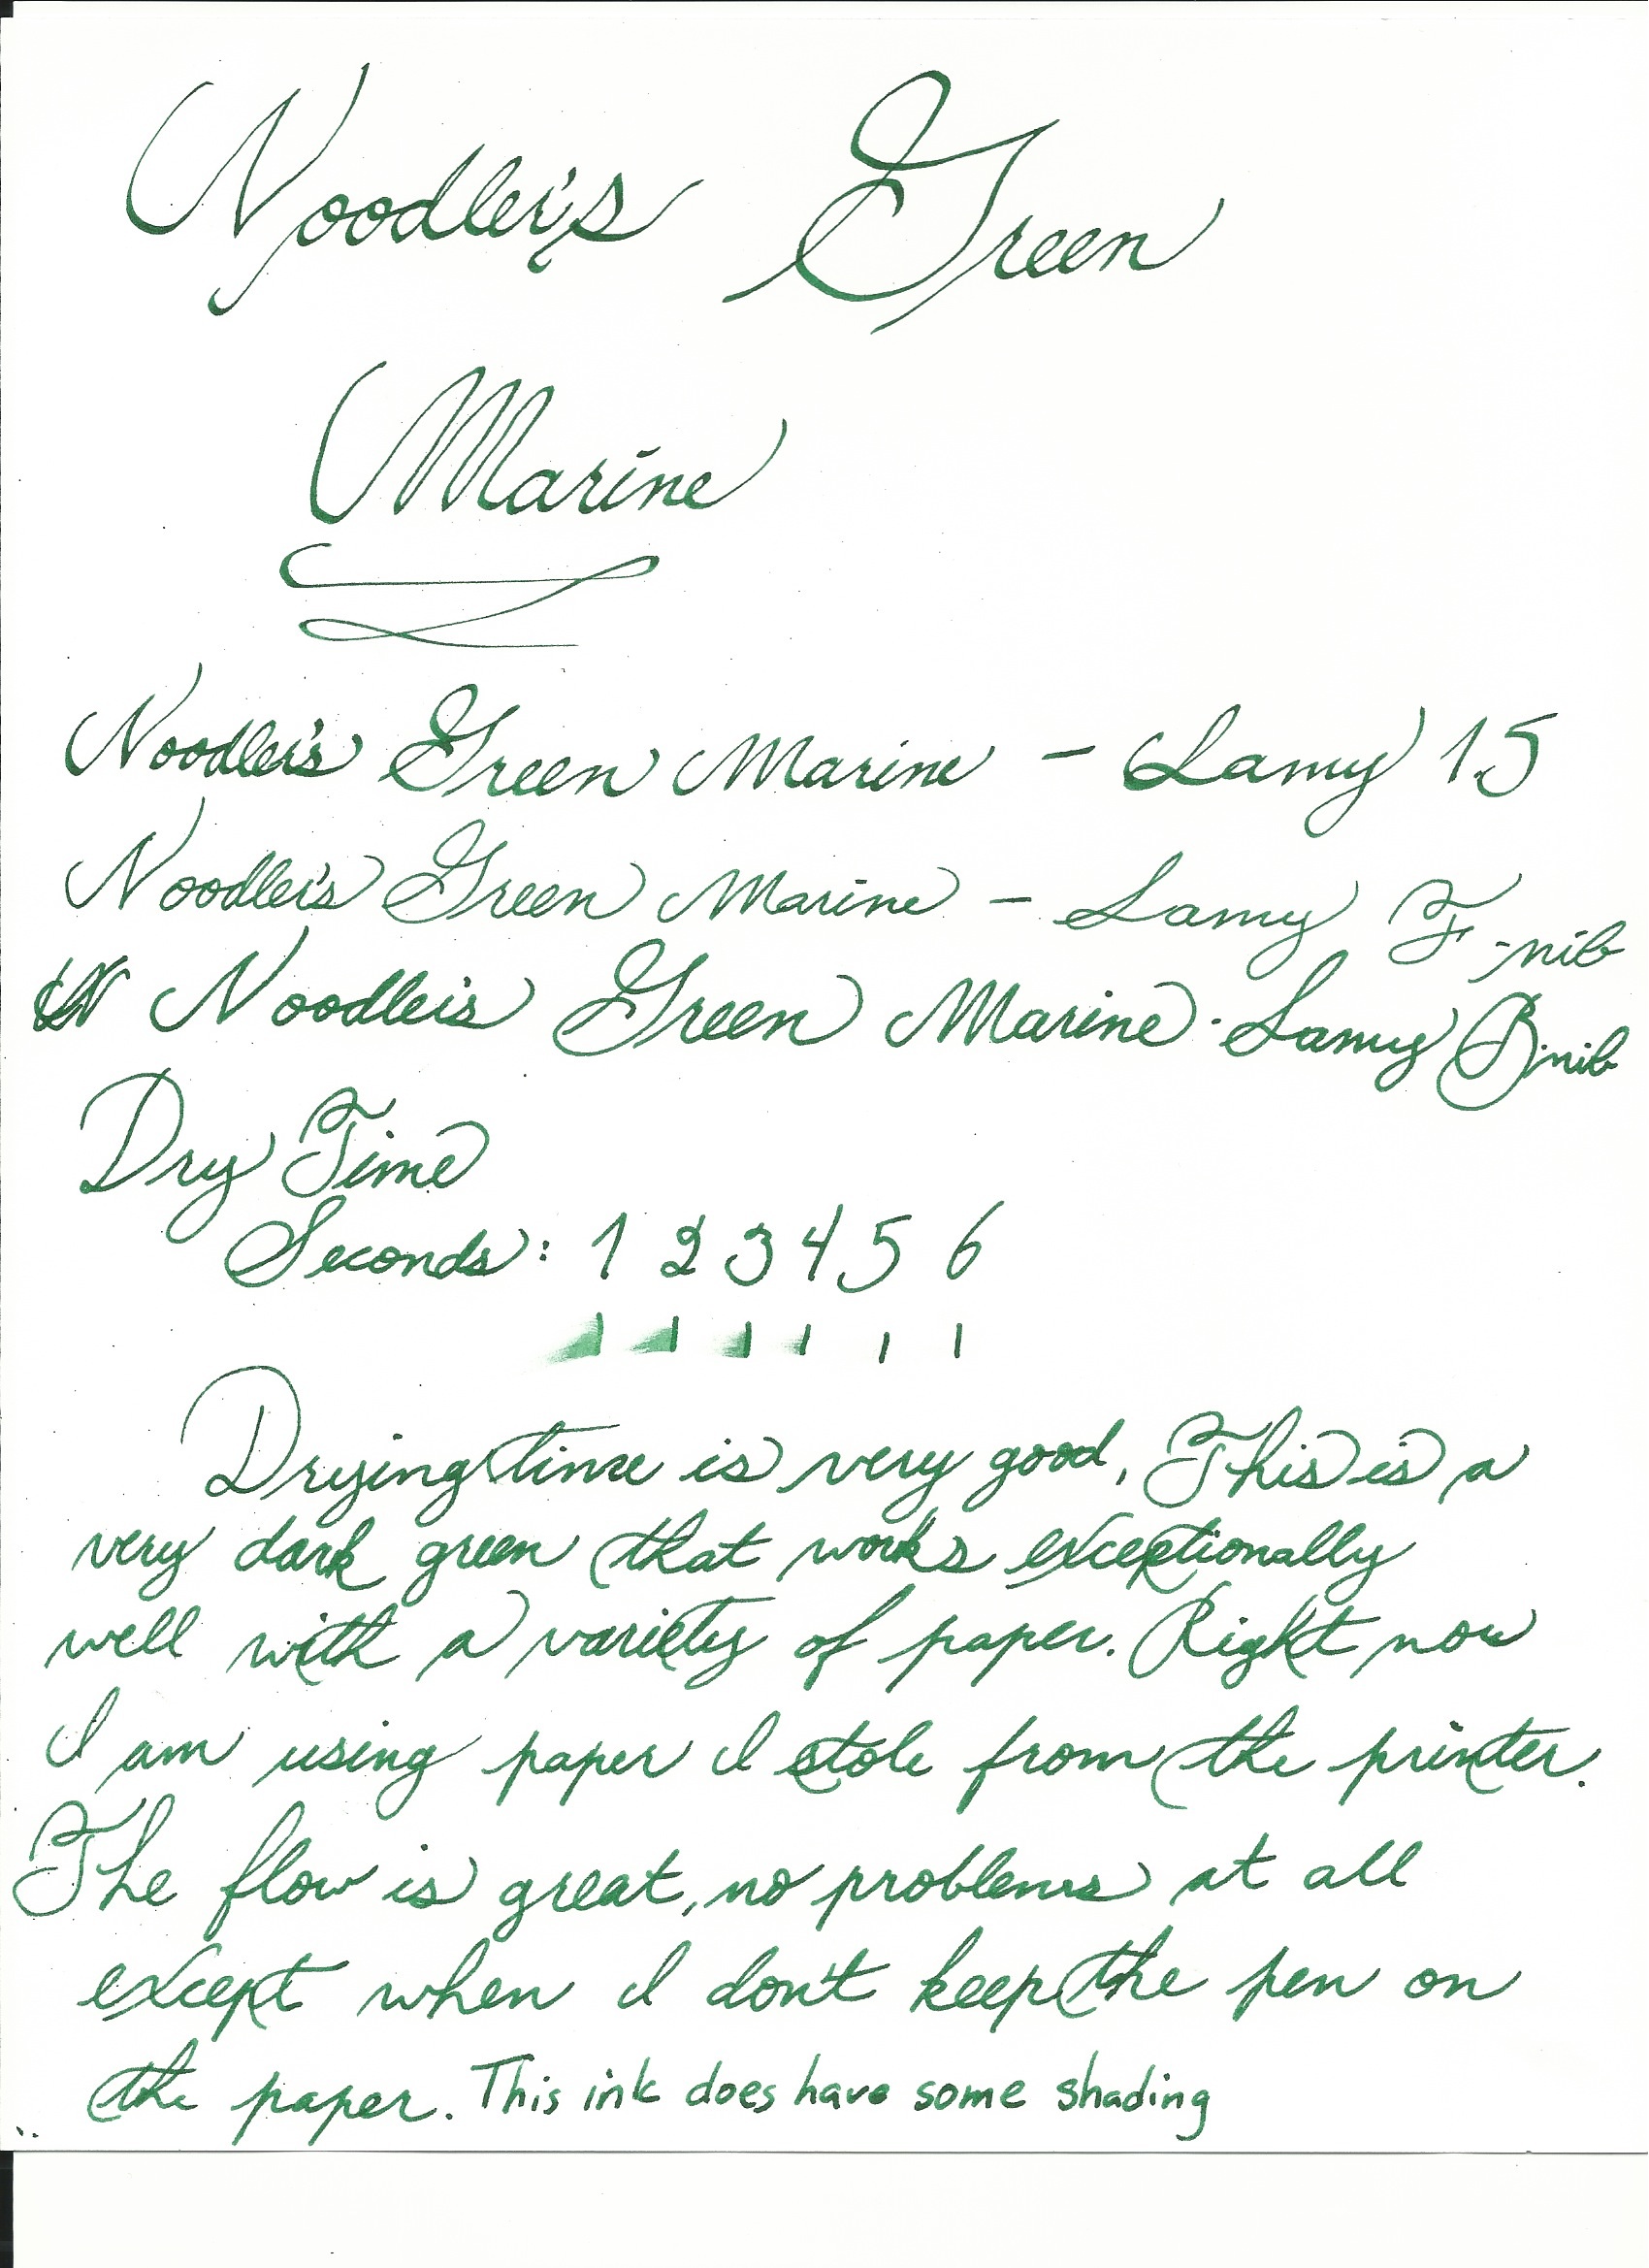 Noodler's Green
Marine
Noodler's Green Marine - Lamy 1.5
Noodler's Green Marine - Lamy F-nib
N Noodler's Green Marine - Lamy B-nib
Dry Time
Seconds: 1 2 3 4 5 6
Drying time is very good, This is a
very dark green that works exceptionally
well with a variety of paper. Right now
I am using paper I stole from the printer.
The flow is great, no problems at all
except when I don't keep the pen on
the paper. This ink does have some shading